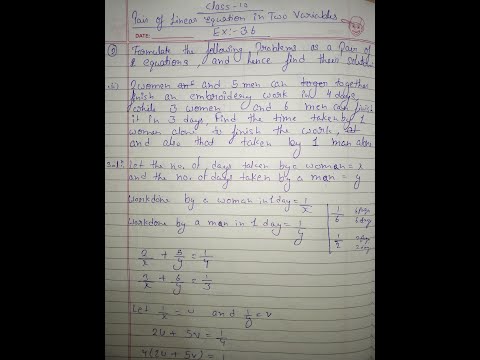 Class-10
Pair of Linear equation in Two Variables
DATE:
Ex:- 3.6
Formulate the following Problems as a Pair of
equations, and hence find their
2 women and 5 men can together
finish an embroidery work in 4 days,
while 3 women and 6 men can finish
it in 3 days. Find the time taken by 1
woman alone to finish the work,
and also that taken by 1 man alone
Let the no. of days taken by a woman = x
and the no. of days taken by a man = y
Workdone by a woman in 1 day = 1/x
Workdone by a man in 1 day = 1/y
1/6
1/2
2/x + 5/y = 1/4
3/x + 6/y = 1/3
Let 1/x = u and 1/y = v
2u + 5v = 1/4
4(2u + 5v) =